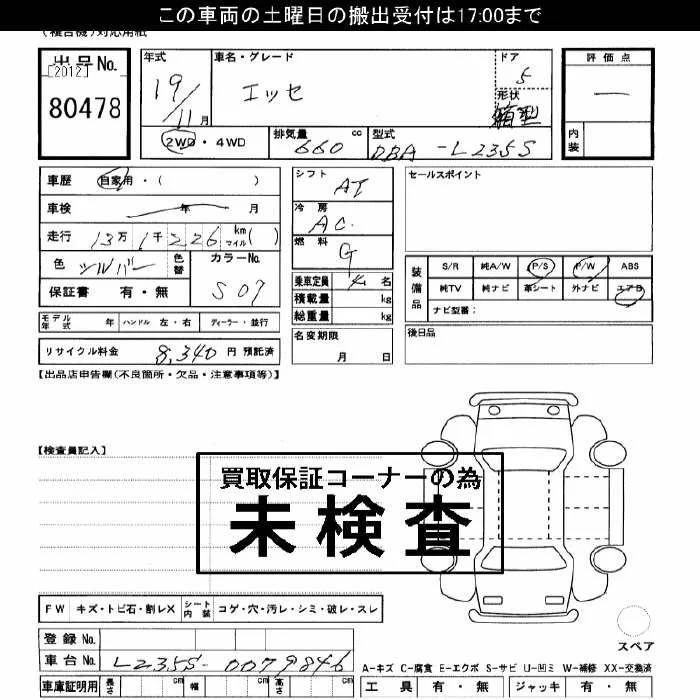 この車両の土曜日の搬出受付は17:00まで
(複合機)対応用紙
出品No.
[2012]
80478
年式
19/11月
車名・グレード
エッセ
ドア
5
形状
箱型
評価点
一
内装
2WD・4WD
排気量 660 cc
型式 DBA-L235S
車歴 自家用・( )
車検 年 月
走行 13万1千226 km マイル( )
色 シルバー 色替
カラーNo. S07
保証書 有・無
シフト AT
冷房 AC
燃料 G
乗車定員 4名
積載量 kg
総重量 kg
セールスポイント
装備品
S/R 純A/W P/S P/W ABS
純TV 純ナビ 革シート 外ナビ エアB
ナビ型番:
モデル年式 年 ハンドル 左・右 ディーラー・並行
名変期限 月 日
後日品
リサイクル料金 8,340 円 預託済
【出品店申告欄(不良箇所・欠品・注意事項等)】
【検査員記入】
買取保証コーナーの為
未検査
FW キズ・トビ石・割レX シート内装 コゲ・穴・汚レ・シミ・破レ・スレ
スペア
登録No.
車台No. L235S-0079846
A-キズ C-腐食 E-エクボ S-サビ U-凹ミ W-補修 XX-交換済
車庫証明用 長さ cm 幅 cm 高さ cm
工具 有・無 ジャッキ 有・無